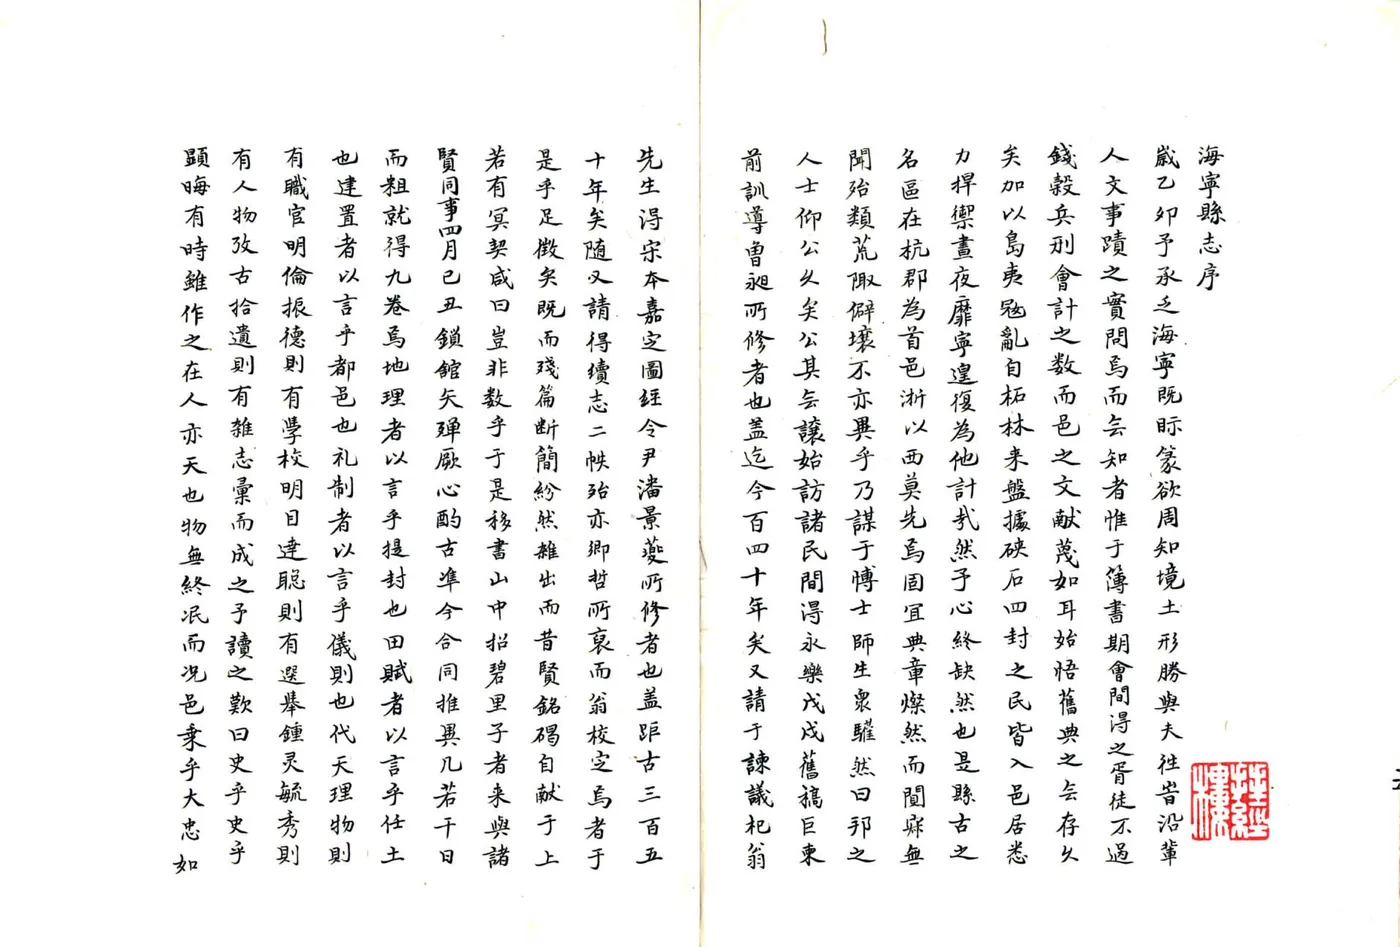 海寧縣志序
歲乙卯予承乏海寧既眎篆欲周知境土形勝與夫往昔沿革
人文事蹟之實問焉而厺知者惟于簿書期會間得之胥徒不過
錢穀兵刑會計之数而邑之文献蔑如耳始悟舊典之厺存久
矣加以島夷冦亂自柘林来盤據硤石四封之民皆入邑居悉
力捍禦晝夜靡寧遑復為他計㢤然予心終缺然也是縣古之
名區在杭郡為首邑浙以西莫先焉固冝典章燦然而闃寂無
聞殆類荒陬僻壤不亦異乎乃謀于博士師生衆驩然曰邦之
人士仰公久矣公其厺讓始訪諸民間得永樂戊戌舊稿巨東
前訓導曽昶所修者也盖迄今百四十年矣又請于諫議杞翁
先生得宋本嘉定圖經令尹潘景夔所修者也盖距古三百五
十年矣随又請得續志二帙殆亦鄉哲所裒而翁校定焉者于
是乎足徴矣既而殘篇断簡紛然雜出而昔賢銘碣自献于上
若有冥契咸曰豈非数乎于是移書山中招碧里子者来與諸
賢同事四月已丑鎖舘矢殫厥心酌古凖今合同推異几若干日
而粗就得九卷焉地理者以言乎提封也田賦者以言乎任土
也建置者以言乎都邑也礼制者以言乎儀則也代天理物則
有職官明倫振德則有學校明目達聪則有選舉鍾灵毓秀則
有人物攷古拾遺則有雜志彙而成之予讀之歎曰史乎史乎
顕晦有時雖作之在人亦天也物無終泯而况邑乗乎大忠如